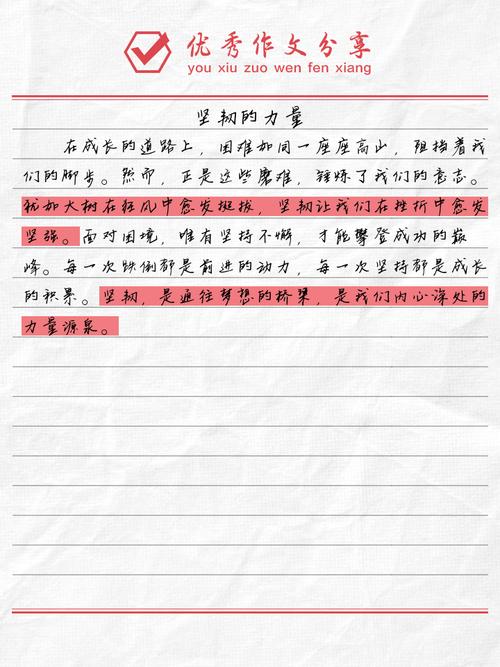 优秀作文分享
you xiu zuo wen fen xiang
坚韧的力量
在成长的道路上，困难如同一座座高山，阻挡着我
们的脚步。然而，正是这些磨难，锤炼了我们的意志。
犹如大树在狂风中愈发挺拔，坚韧让我们在挫折中愈发
坚强。面对困境，唯有坚持不懈，才能攀登成功的巅
峰。每一次跌倒都是前进的动力，每一次坚持都是成长
的积累。坚韧，是通往梦想的桥梁，是我们内心深处的
力量源泉。